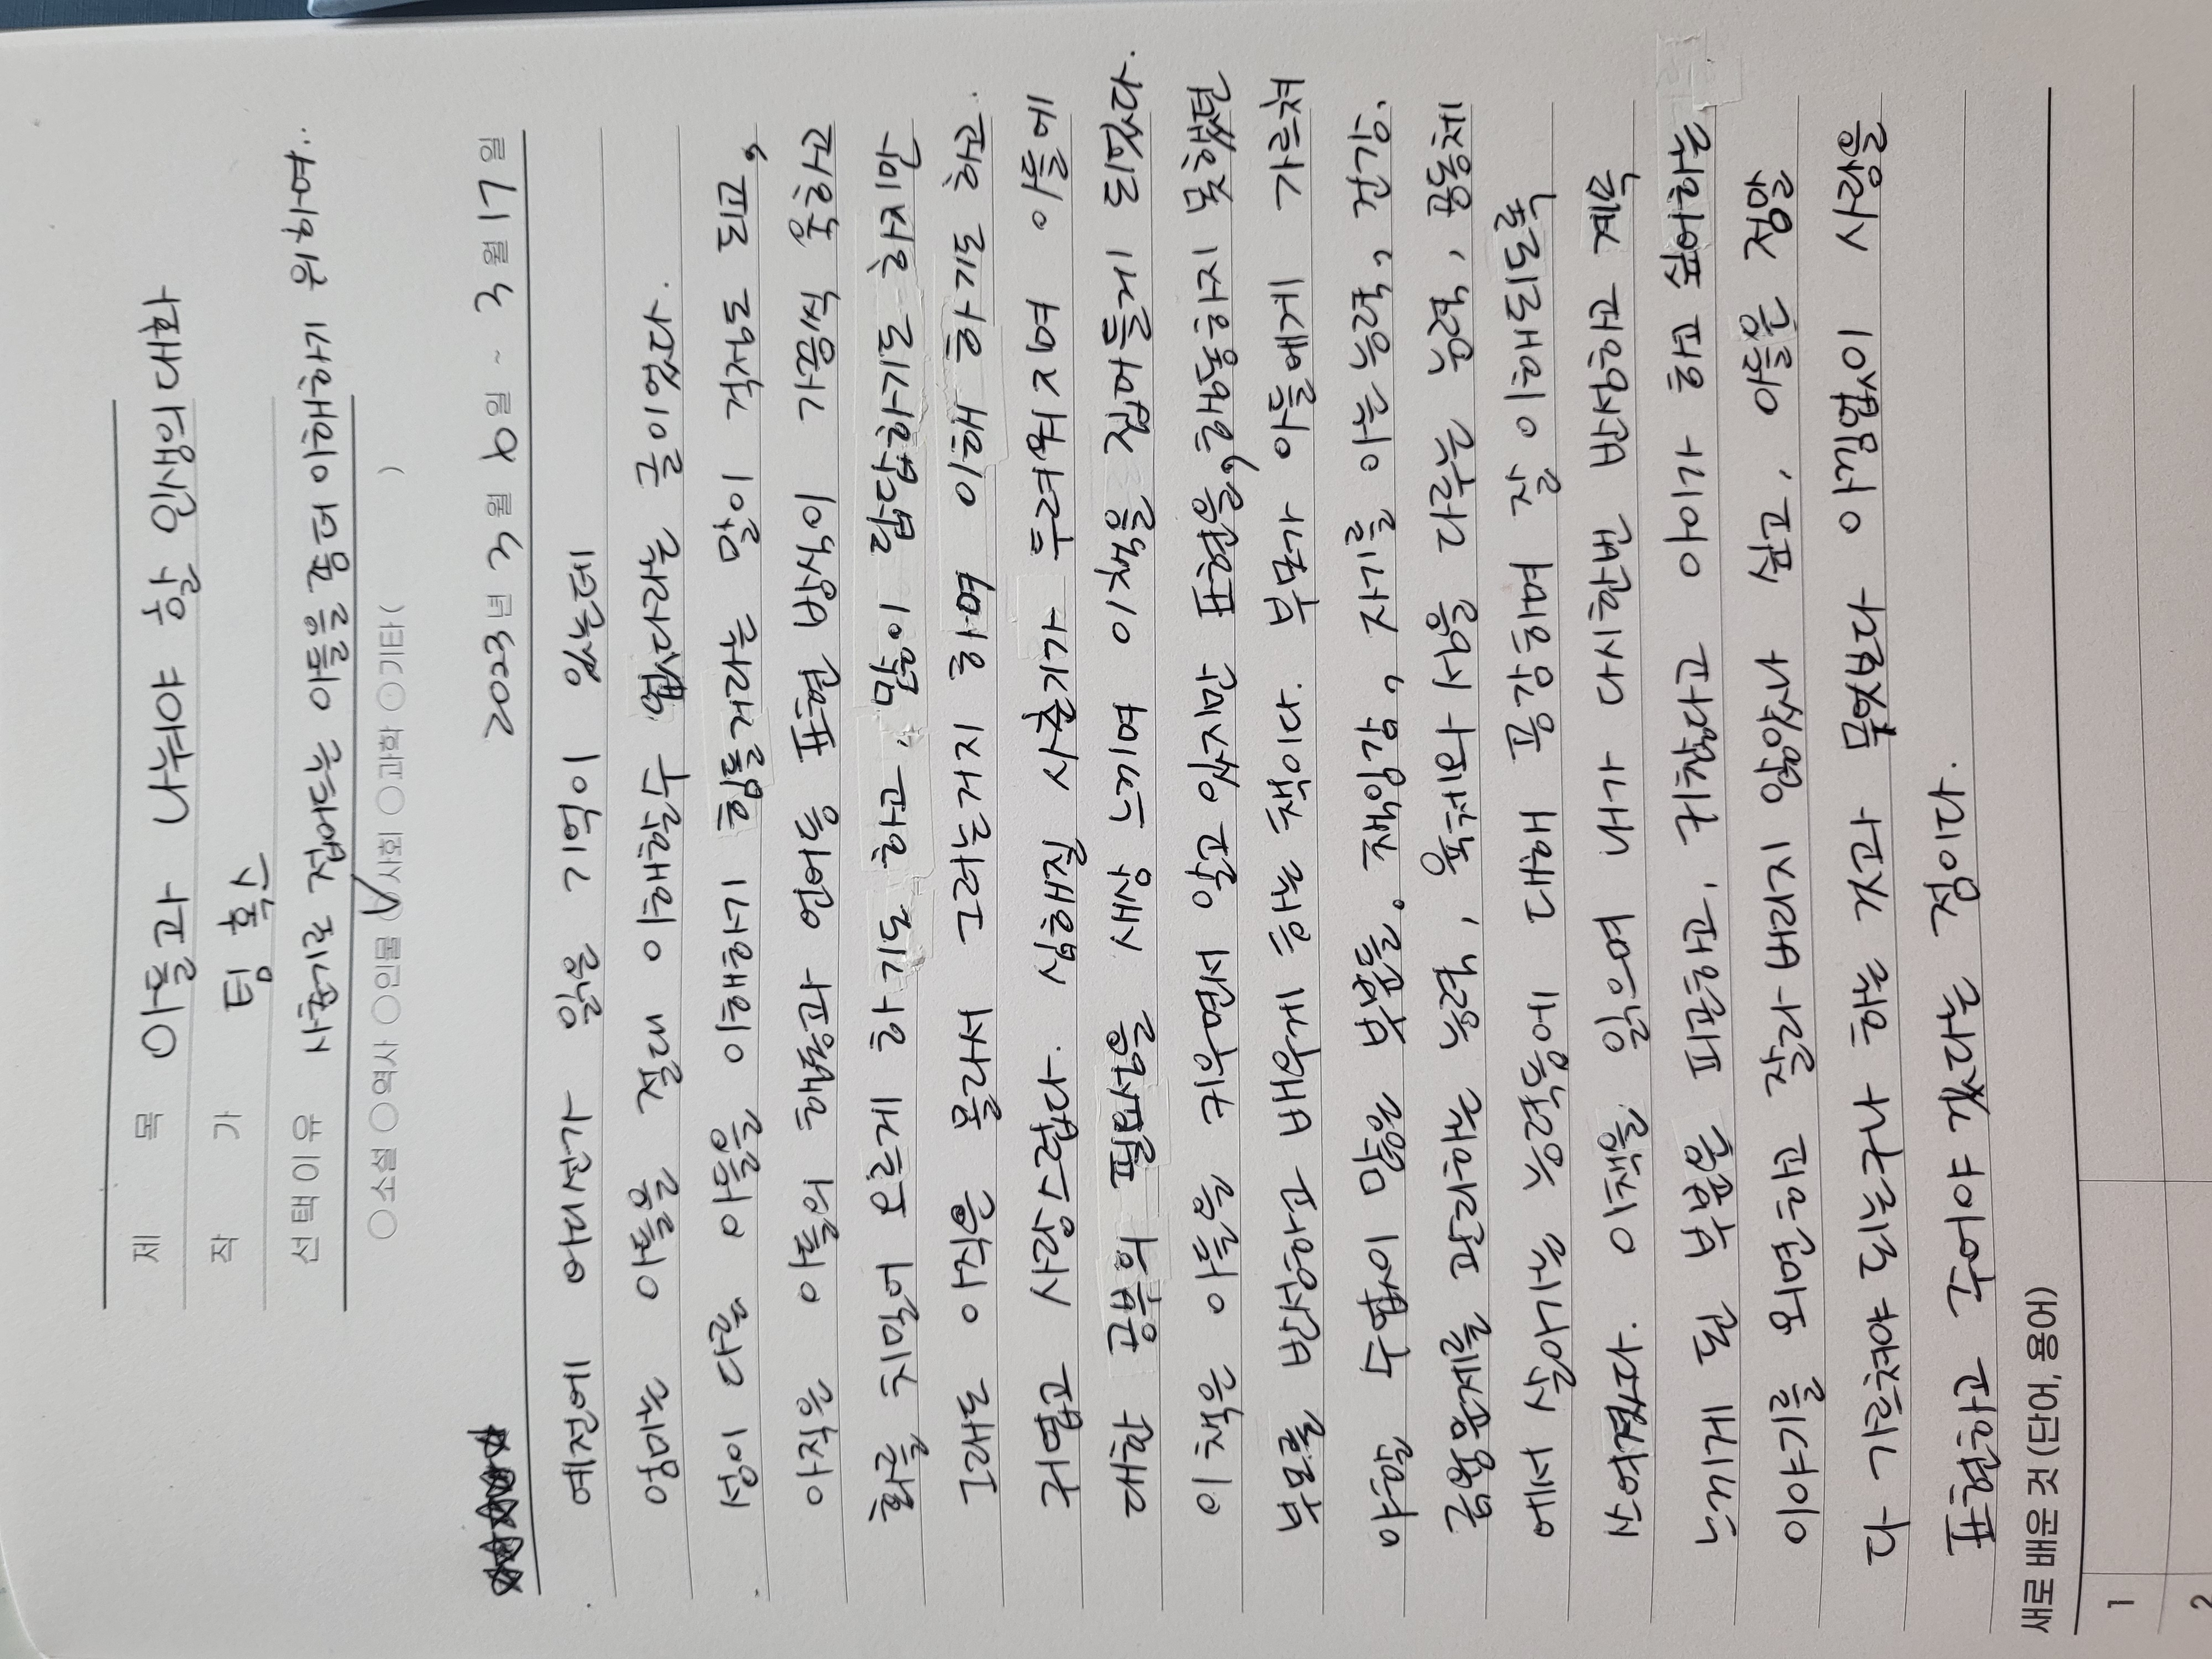 제 목 아들과 나눠야 할 인생의 대화
작 가 팀 혹스
선택이유 사춘기로 접어드는 아들을 좀더 이해하기 위하여..
소설 역사 인물 사회 과학 기타( )
2023년 3월 6일 ~ 3월 17일
예전에 어디선가 읽은 기억이 있는데
엄마는 아들을 절대 이해할수 없다라는 글이었다.
성이 다름 아들을 이해하기 힘들거라는 말이 걱정도 되고,
아직은 아들의 행동과 언어등 표현 방식이 가끔씩 욱하고
화를 치밀어 오르게 하기도 하고, 많이 답답하기도 하지만
그래도 아직은 몰라서 그러는거지 하며 이해 하기도 하고.
귀엽고 사랑스럽다. 심해질 사춘기가 두려워 지며 아들에
대한 공부의 필요성을 새삼 느끼며 이책을 집어들게 되었다.
이 책은 아들을 키우면서 알고 있지만 표현을, 행동하지 못했던
부모를 반성하고 배우게 하는 책이다. 부모가 아들에게 가르쳐
야할 수없이 많은 부분들. 책임감, 자기를 아는 능력, 건강,
금융문제를 관리하는 능력, 육체와 성을 다루는 능력, 공동체
에서 살아가는 능력등에 대해 공감하며 잘 이해되도록
쓰여졌다. 이책을 읽으며 내가 다시한번 반성하고
느끼게 된 부분은 피곤하고, 귀찮다고 아이가 하고 싶어하는
이야기를 외면하고 잘라 버리지 않았나 싶고, 아들은 정말
다 가르쳐야 되는구나 하는 것과 무엇보다 아낌없이 사랑을
표현하고 주어야 겠다는 점이다.
새로 배운 것 (단어, 용어)
1
2